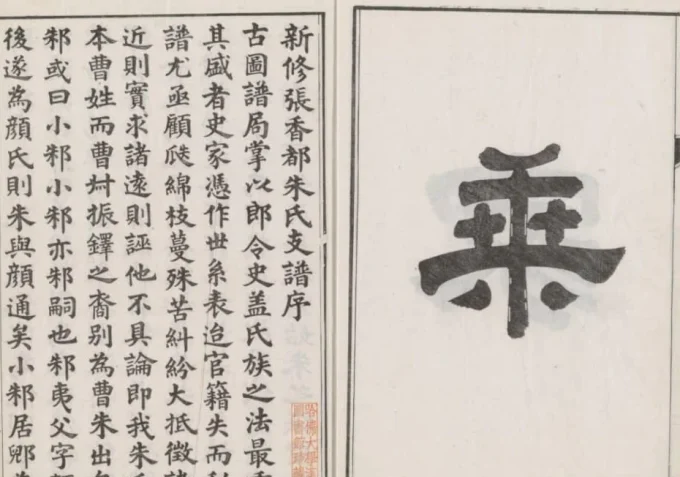 乘
新修張香都朱氏支譜序
古圖譜局掌以郎令史盖氏族之法最
其盛者史家憑作世系表迨官籍失而
譜尤亟顧瓞綿枝蔓殊苦糾紛大抵徵
近則實求諸遠則誣他不具論即我朱
本曹姓而曹叔振鐸之裔别為曹朱出
邾或曰小邾小邾亦邾嗣也邾夷父字
後遂為顏氏則朱與顏通矣小邾居郳
哈佛大學漢
圖書館珍藏